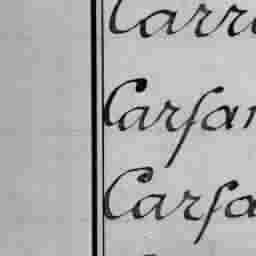 Carr
Carſa
Carſa